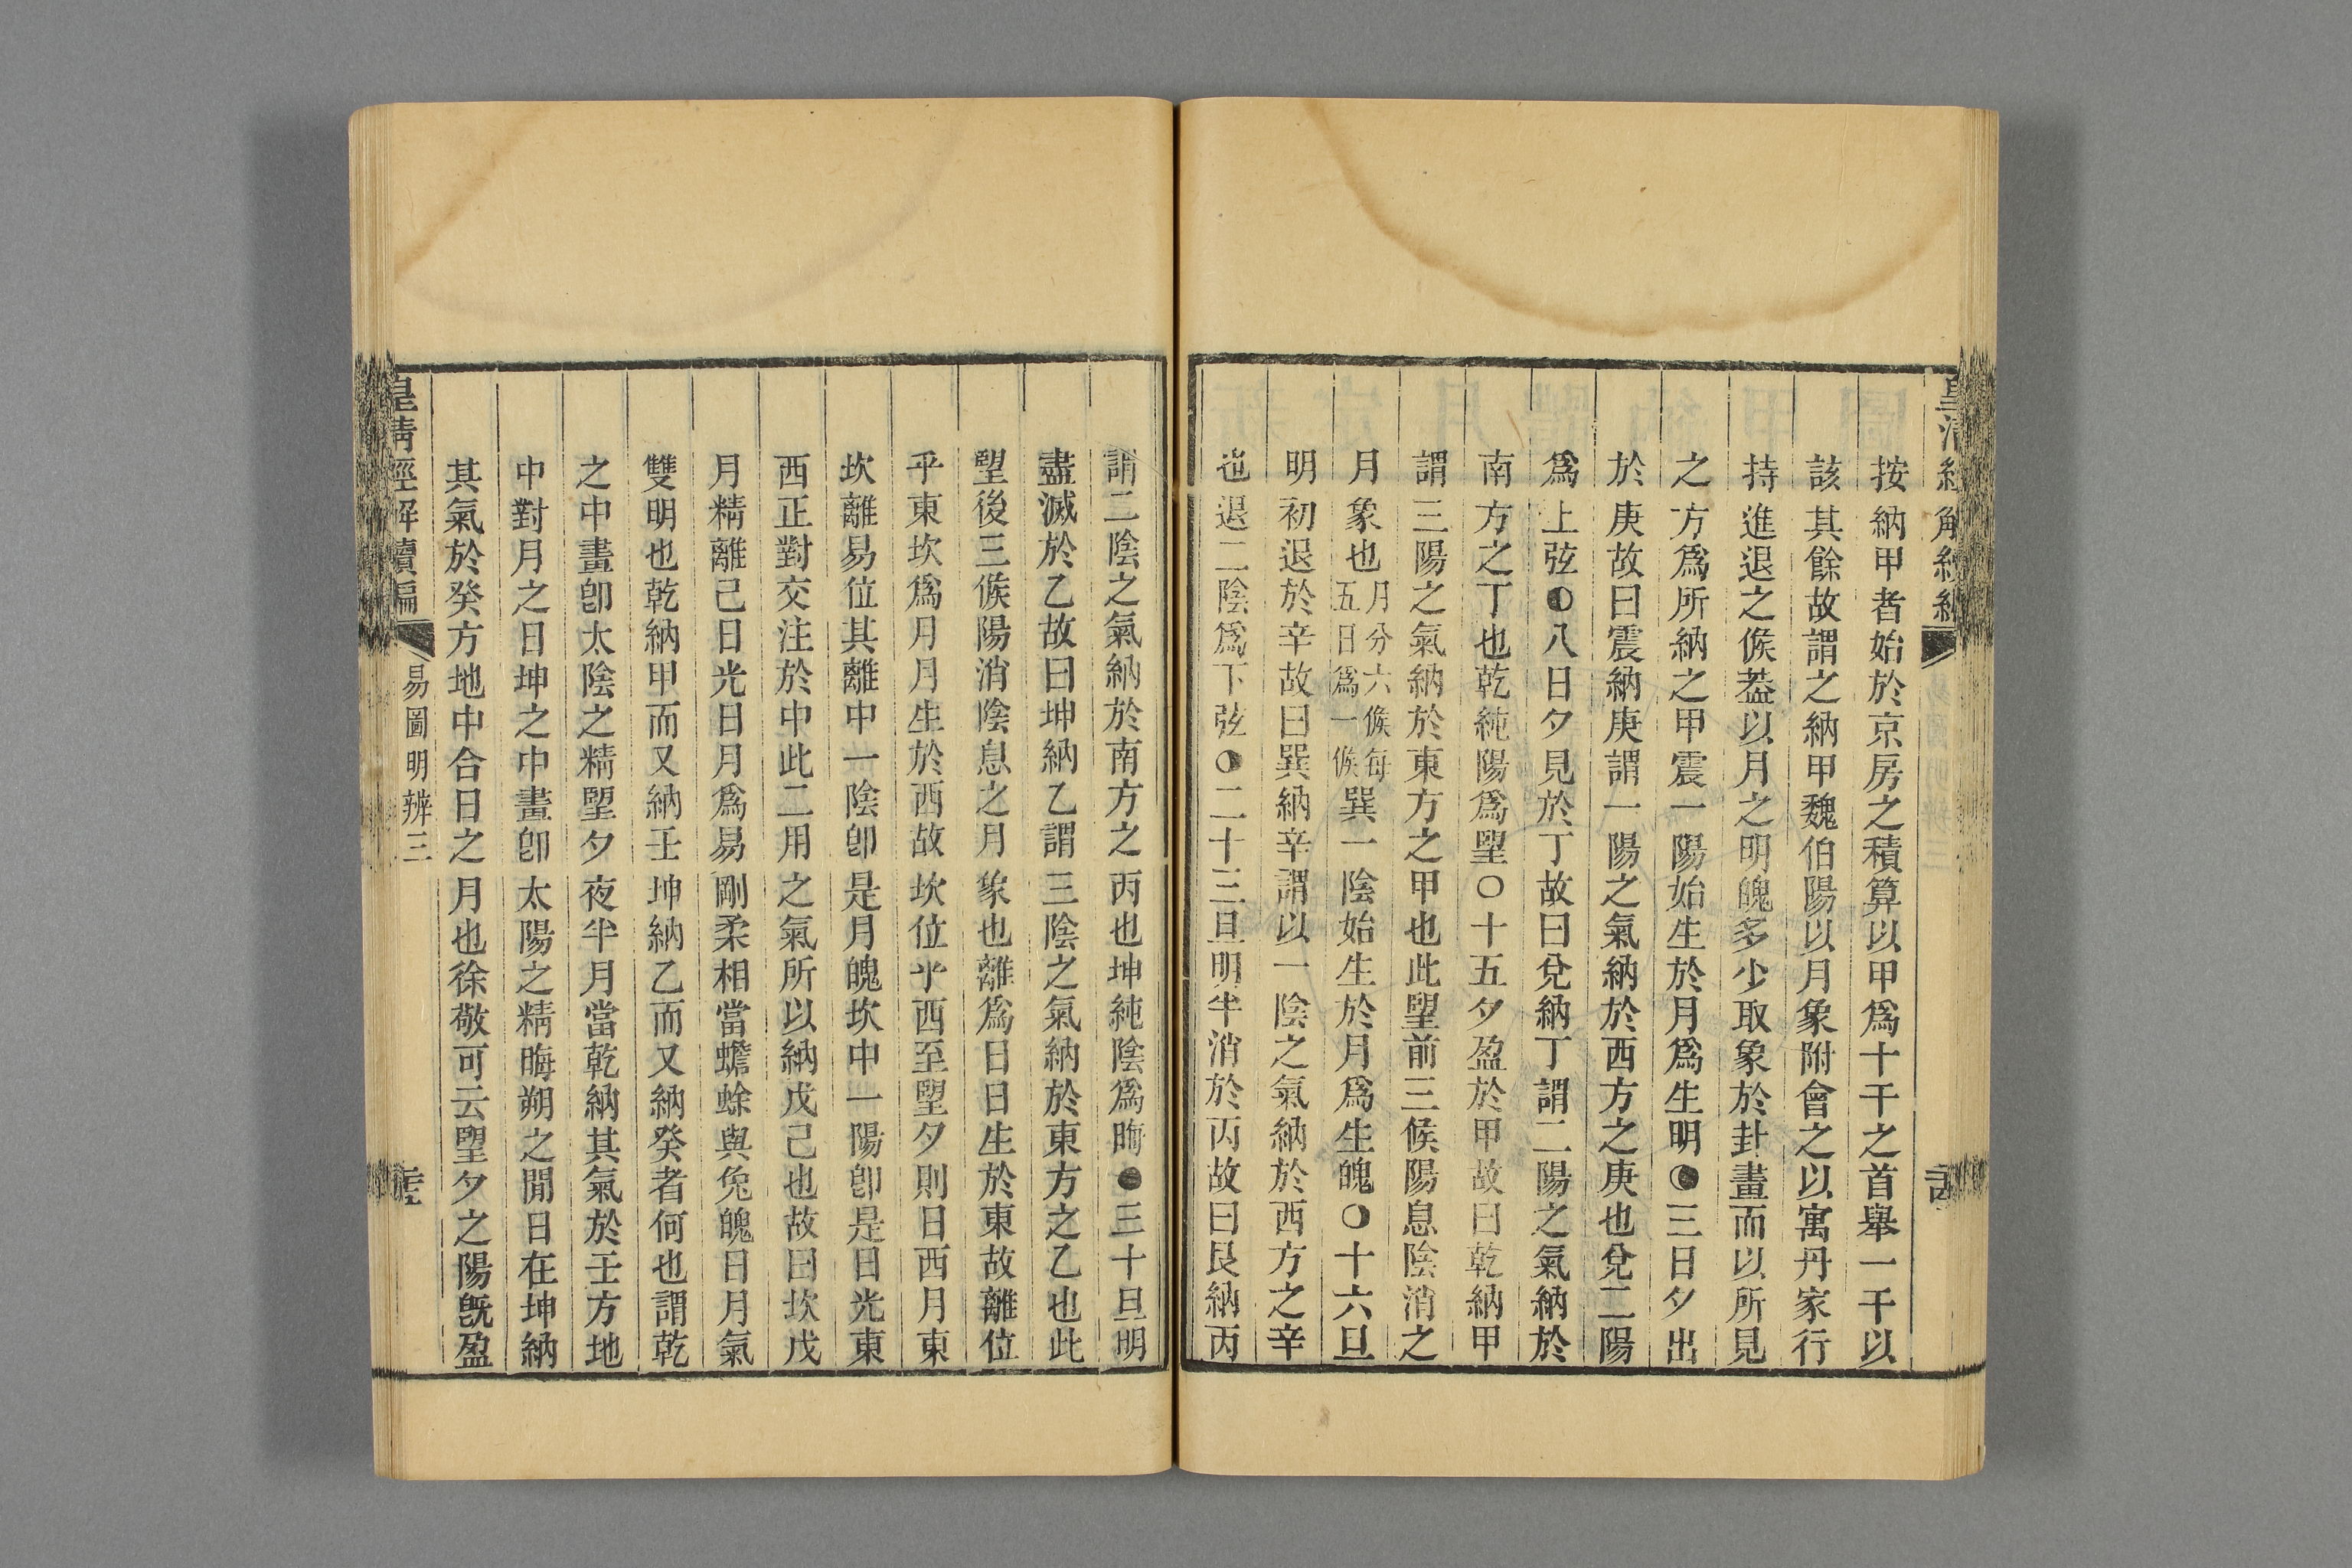 按納甲者始於京房之積算以甲爲十干之首舉一干以
該其餘故謂之納甲魏伯陽以月象附會之以寓丹家行
持進退之候葢以月之明魄多少取象於卦畫而以所見
之方爲所納之甲震一陽始生於月爲生明三日夕出
於庚故曰震納庚謂一陽之氣納於西方之庚也兌二陽
爲上弦八日夕見於丁故曰兌納丁謂二陽之氣納於
南方之丁也乾純陽爲望○十五夕盈於甲故曰乾納甲
謂三陽之氣納於東方之甲也此望前三候陽息陰消之
月象也月分六候每五日爲一候巽一陰始生於月爲生魄十六旦
明初退於辛故曰巽納辛謂以一陰之氣納於西方之辛
也退二陰爲下弦二十三旦明半消於丙故曰艮納丙
謂二陰之氣納於南方之丙也坤純陰爲晦●三十旦明
盡滅於乙故曰坤納乙謂三陰之氣納於東方之乙也此
望後三候陽消陰息之月象也離爲日日生於東故離位
乎東坎爲月月生於西故坎位乎西至望夕則日西月東
坎離易位其離中一陰卽是月魄坎中一陽卽是日光東
西正對交注於中此二用之氣所以納戊己也故曰坎戊
月精離己日光日月爲易剛柔相當蟾蜍與兔魄日月氣
雙明也乾納甲而又納壬坤納乙而又納癸者何也謂乾
之中畫卽太陰之精望夕夜半月當乾納其氣於壬方地
中對月之日坤之中畫卽太陽之精晦朔之閒日在坤納
其氣於癸方地中合日之月也徐敬可云望夕之陽旣盈
皇清經解續編 易圖明辨三